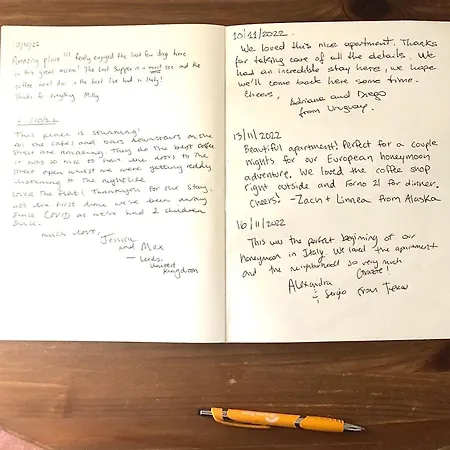 Amazing place!!! Really enjoyed the last few days here
in this great accom! The Last Supper is a must see and the
coffee next door is the best I've had in Italy!
Thanks for everything Milly
This place is stunning!
All the cafes and bars downstairs on the
street are amazing. They do the best coffee
It was so nice to have the doors to the
street open whilst we were getting ready
listening to the nightlife.
Loved the flat! Thankyou for our stay,
its the first time we've been away
since COVID as we've had 2 children
since.
much love,
Jessica
and Max
— Leeds,
United
Kingdom
10/11/2022
We loved this nice apartment. Thanks
for taking care of all the details. We
had an incredible stay here, we hope
we'll come back here some time.
Cheers,
Adriana and Diego
from Uruguay.
13/11/2022
Beautiful apartment! Perfect for a couple
nights for our European honeymoon
adventure. We loved the coffee shop
right outside and Forno 21 for dinner.
Cheers! -Zach + Linnea from Alaska
16/11/2022
This was the perfect beginning of our
honeymoon in Italy. We loved the apartment
and the neighborhood so very much
Grazie!
Alexandra
Sergio from